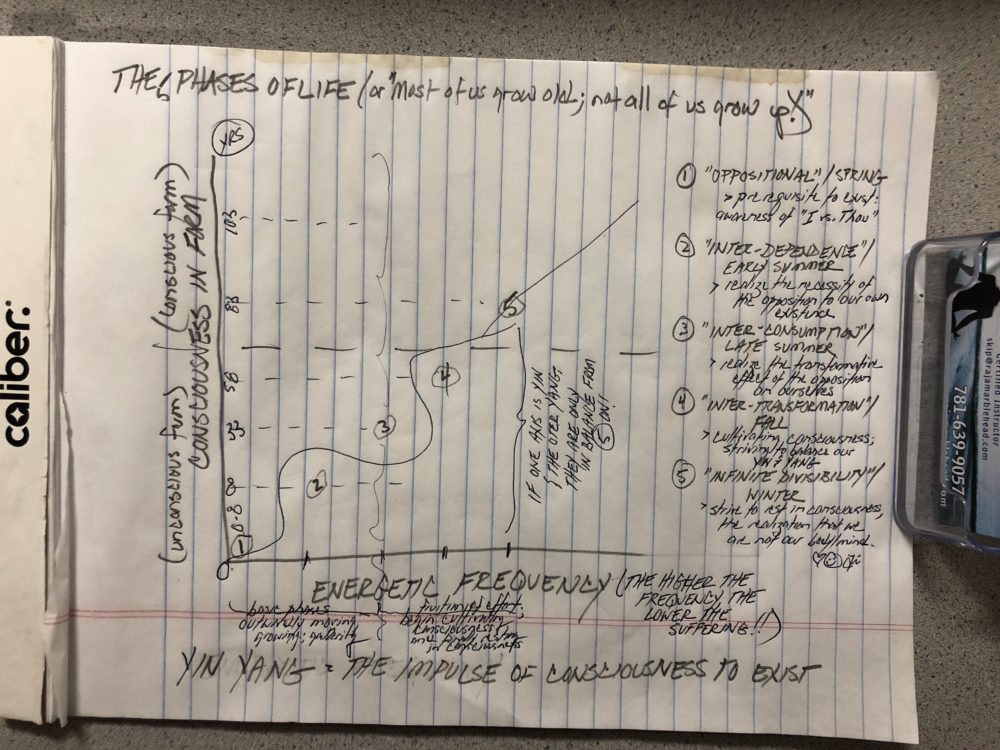 THE 6 PHASES OF LIFE (or "Most of us grow old; not all of us grow up!")
YRS
103
88
58
33
8
0-8
0
(unconscious form) (conscious form)
CONSCIOUSNESS IN FORM
1
2
3
4
5
IF ONE AXIS IS YIN
& THE OTER YANG,
THEY ARE ONLY
IN BALANCE FROM
5 ON!
① "OPPOSITIONAL" / SPRING
> prerequisite to exist:
awareness of "I vs. Thou"
② "INTER-DEPENDENCE" /
EARLY SUMMER
> realize the necessity of
the opposition to our own
existence
③ "INTER-CONSUMPTION" /
LATE SUMMER
> realize the transformative
effect of the opposition
on ourselves
④ "INTER-TRANSFORMATION" /
FALL
> cultivating consciousness;
striving to balance our
YIN & YANG
⑤ "INFINITE DIVISIBILITY" /
WINTER
> strive to rest in consciousness,
the realization that we
are not our body/mind.
ENERGETIC FREQUENCY (THE HIGHER THE
FREQUENCY, THE
LOWER THE
SUFFERING!!)
basic phases
outwardly moving
growing:
fruition of effort:
begin cultivating
consciousness &
resting
in consciousness
YIN YANG = THE IMPULSE OF CONSCIOUSNESS TO EXIST
caliber:
Instructor
skip@rajamarblehead.com
781-639-9057